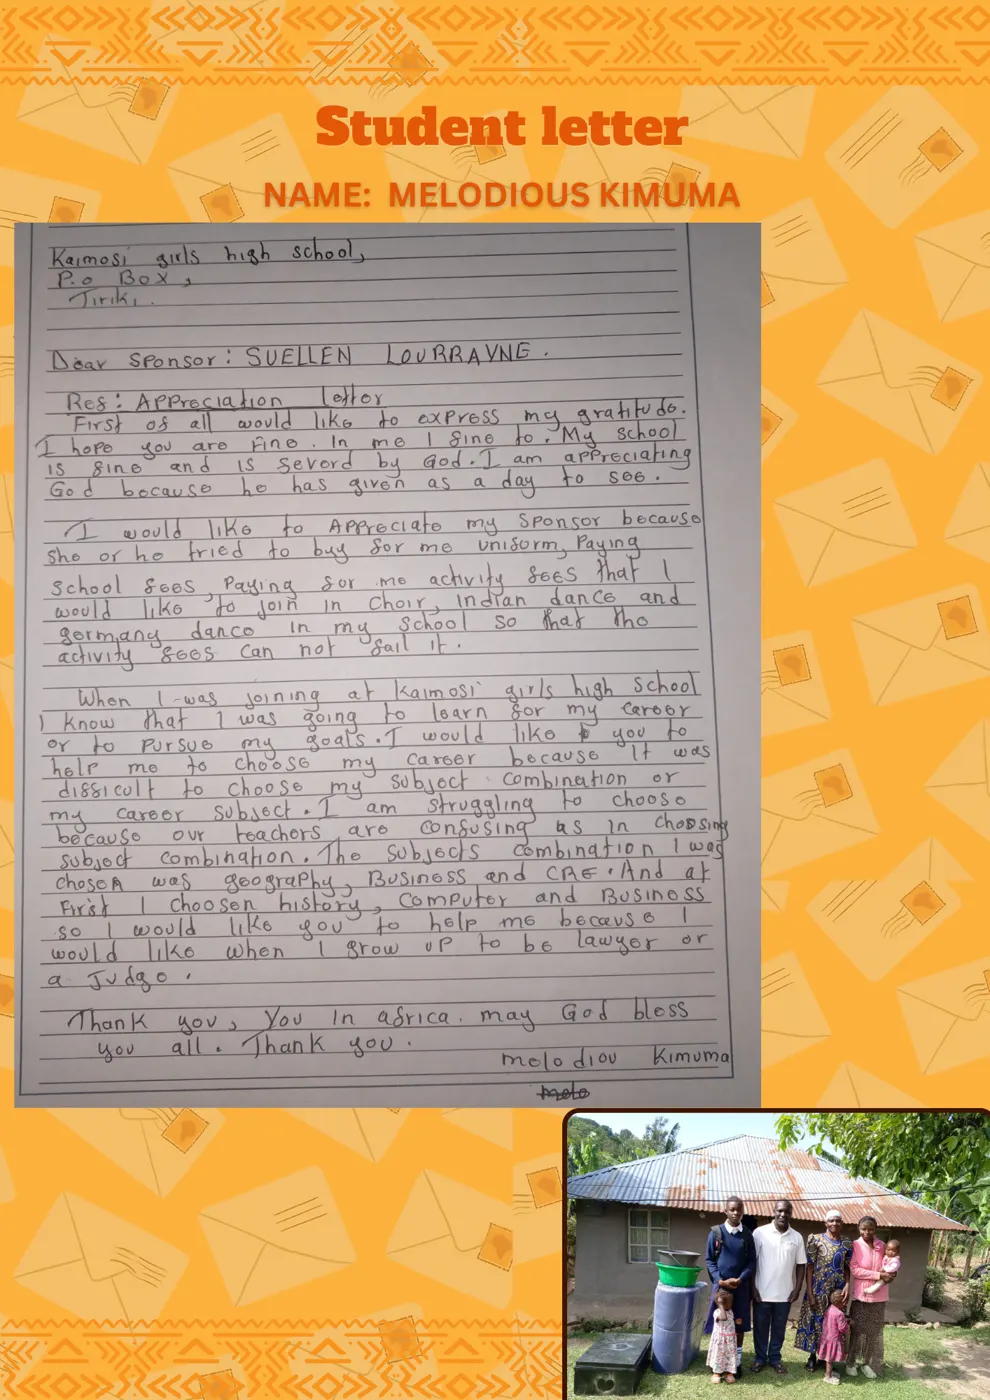 Student letter
NAME: MELODIOUS KIMUMA
Kaimosi girls high school,
P.o Box,
Tiriki.
Dear Sponsor: SUELLEN LOURRAVNE.
Res: Appreciation letter
First of all would like to express my gratitude.
I hope you are fine. In me I fine to. My school
is fine and is severd by God. I am appreciating
God because he has given as a day to see.
I would like to Appreciate my sponsor because
she or he tried to buy for me uniform, Paying
school fees, Paying for me activity fees that I
would like to join in choir, Indian dance and
germany dance in my school so that the
activity fees can not fail it.
When I was joining at kaimosi girls high school
I know that I was going to learn for my career
or to pursue my goals. I would like you to
help me to choose my career because it was
difficult to choose my subject combination or
my career subject. I am struggling to choose
because our teachers are confusing as in choosing
subject combination. The subjects combination I was
chosen was geography, Business and CRE. And at
First I choosen history, computer and Business
so I would like you to help me because I
would like when I grow up to be lawyer or
a Judge.
Thank you, You in africa. may God bless
you all. Thank you.
melodiou Kimuma
melo